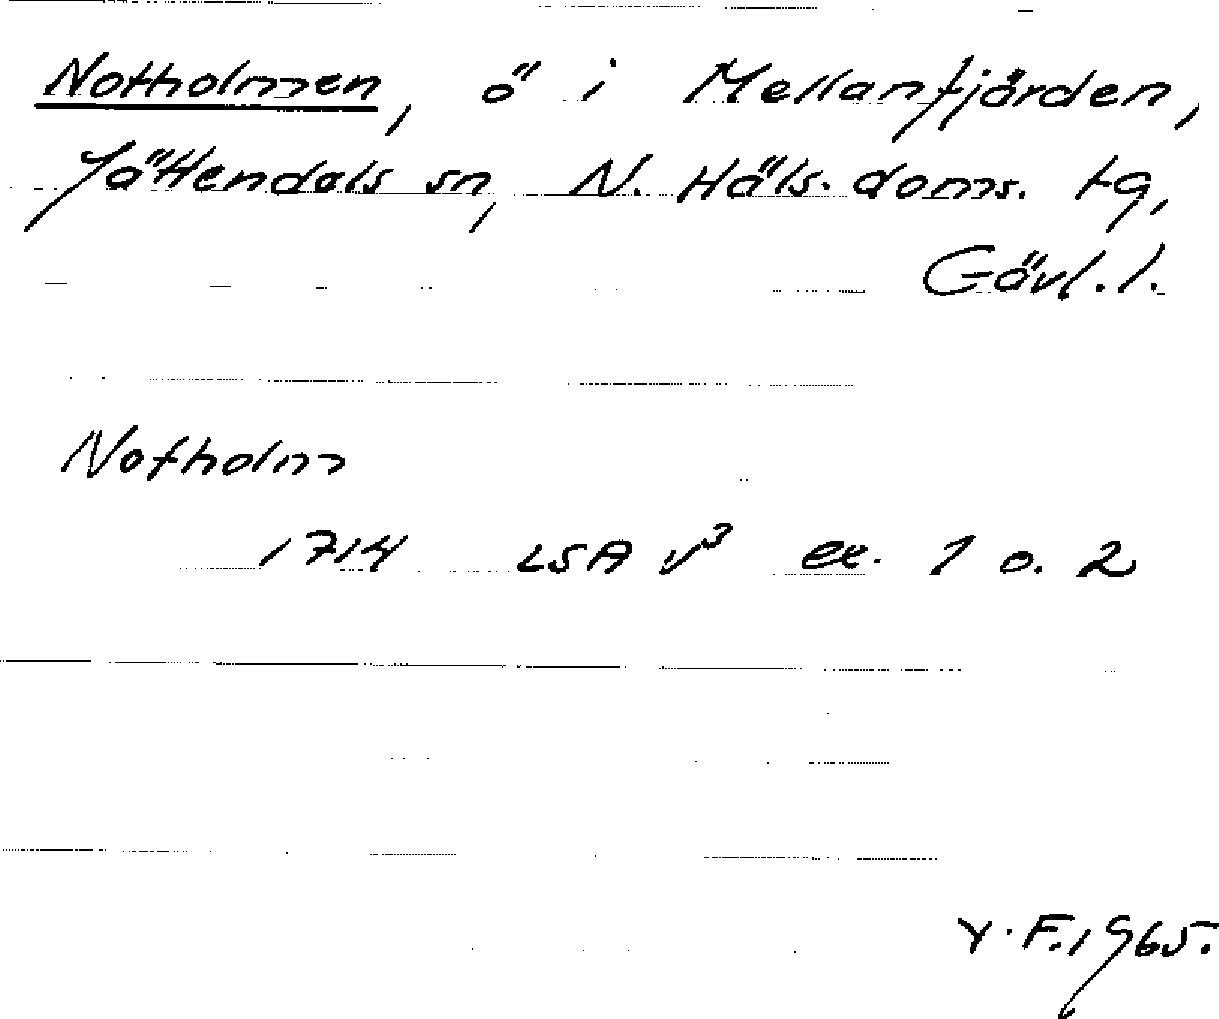 Notholmen, ö i Mellanfjärden,
Jättendals sn, N. Häls. doms. tg,
Gävl. l.
Notholm
1714 LSA v³ ex. 1 o. 2
Y. F. 1965.